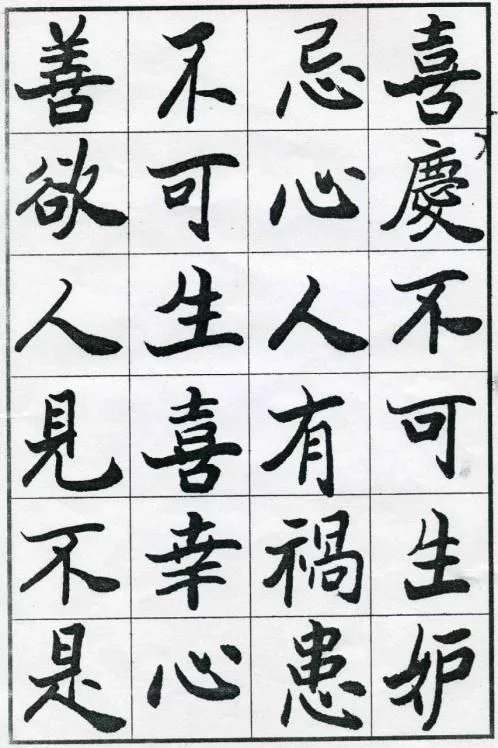 喜慶不可生妒
忌心人有禍患
不可生喜幸心
善欲人見不是